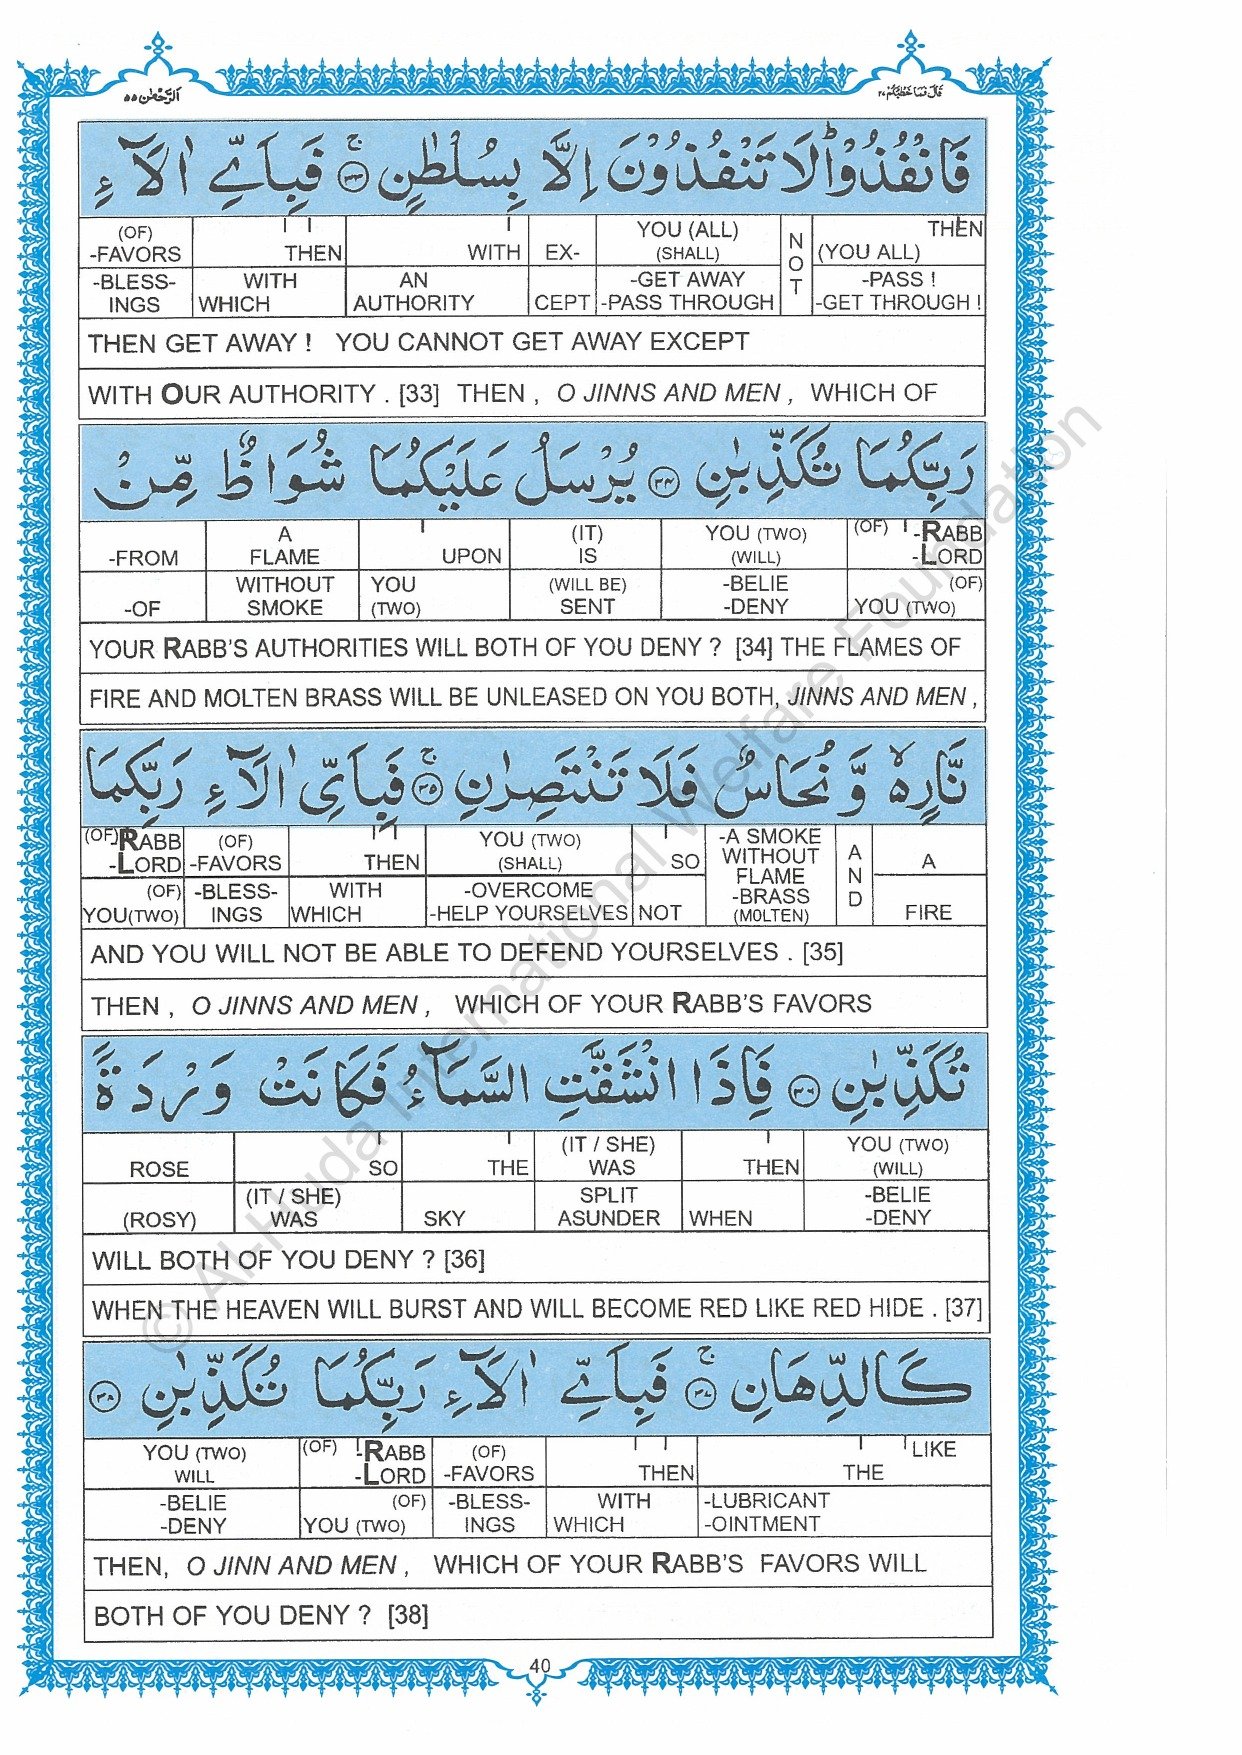 اَلرَّحْمٰن ٥٥
قَالَ فَمَا خَطْبُكُمْ ٢٧
فَانْفُذُوْا ؕ لَا تَنْفُذُوْنَ اِلَّا بِسُلْطٰنٍ ۚ ﴿٣٣﴾ فَبِاَيِّ اٰلَآءِ
(OF) THEN WITH EX- YOU (ALL) NOT THEN
-FAVORS (SHALL) (YOU ALL)
-BLESS- WITH AN -GET AWAY -PASS !
INGS WHICH AUTHORITY CEPT -PASS THROUGH -GET THROUGH !
THEN GET AWAY ! YOU CANNOT GET AWAY EXCEPT
WITH OUR AUTHORITY . [33] THEN , O JINNS AND MEN , WHICH OF
رَبِّكُمَا تُكَذِّبٰنِ ﴿٣٤﴾ يُرْسَلُ عَلَيْكُمَا شُوَاظٌ مِّنْ
A (IT) YOU (TWO) (OF) -RABB
-FROM FLAME UPON IS (WILL) -LORD
WITHOUT YOU (WILL BE) -BELIE (OF)
-OF SMOKE (TWO) SENT -DENY YOU (TWO)
YOUR RABB'S AUTHORITIES WILL BOTH OF YOU DENY ? [34] THE FLAMES OF
FIRE AND MOLTEN BRASS WILL BE UNLEASED ON YOU BOTH, JINNS AND MEN ,
نَّارٍ ۙ وَّ نُحَاسٌ فَلَا تَنْتَصِرٰنِ ۚ ﴿٣٥﴾ فَبِاَيِّ اٰلَآءِ رَبِّكُمَا
(OF) RABB (OF) YOU (TWO) -A SMOKE
-LORD -FAVORS THEN (SHALL) SO WITHOUT AND A
FLAME
(OF) -BLESS- WITH -OVERCOME -BRASS
YOU(TWO) INGS WHICH -HELP YOURSELVES NOT (MOLTEN) FIRE
AND YOU WILL NOT BE ABLE TO DEFEND YOURSELVES . [35]
THEN , O JINNS AND MEN , WHICH OF YOUR RABB'S FAVORS
تُكَذِّبٰنِ ﴿٣٦﴾ فَاِذَا انْشَقَّتِ السَّمَآءُ فَكَانَتْ وَرْدَةً
(IT / SHE) YOU (TWO)
ROSE SO THE WAS THEN (WILL)
(IT / SHE) SPLIT -BELIE
(ROSY) WAS SKY ASUNDER WHEN -DENY
WILL BOTH OF YOU DENY ? [36]
WHEN THE HEAVEN WILL BURST AND WILL BECOME RED LIKE RED HIDE . [37]
كَالدِّهَانِ ۚ ﴿٣٧﴾ فَبِاَيِّ اٰلَآءِ رَبِّكُمَا تُكَذِّبٰنِ ﴿٣٨﴾
YOU (TWO) (OF) -RABB (OF) LIKE
WILL -LORD -FAVORS THEN THE
-BELIE (OF) -BLESS- WITH -LUBRICANT
-DENY YOU (TWO) INGS WHICH -OINTMENT
THEN, O JINN AND MEN , WHICH OF YOUR RABB'S FAVORS WILL
BOTH OF YOU DENY ? [38]
40
© Al-Huda International Welfare Foundation